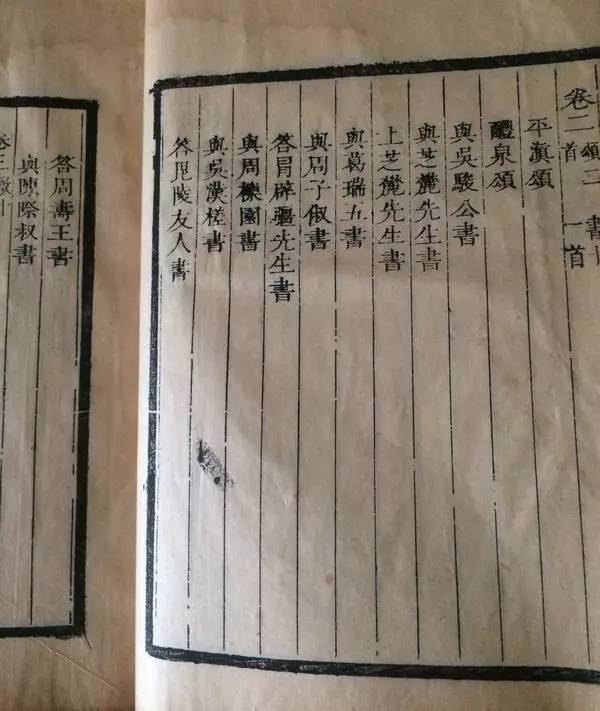 卷二 頌二首 書十一首
平滇頌
醴泉頌
與吳駿公書
與芝麓先生書
上芝麓先生書
與葛瑞五書
與周子俶書
答冒辟疆先生書
與周櫟園書
與吳漢槎書
答毘陵友人書
答周壽王書
與陳際叔書
卷三